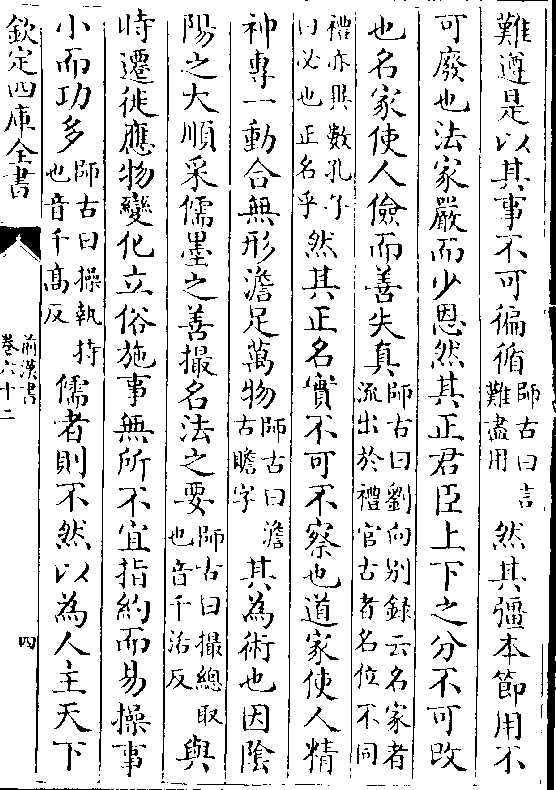 難遵是以其事不可徧循師古曰言難盡用然其彊本節用不
可廢也法家嚴而少恩然其正君臣上下之分不可改
也名家使人儉而善失真師古曰劉向别錄云名家者流出於禮官古者名位不同
禮亦異數孔子曰必也正名乎然其正名實不可不察也道家使人精
神專一動合無形澹足萬物師古曰澹古贍字其為術也因陰
陽之大順采儒墨之善撮名法之要師古曰撮總取也音千活反與
時遷徙應物變化立俗施事無所不宜指約而易操事
小而功多師古曰操執持也音千高反儒者則不然以為人主天下
欽定四庫全書
前漢書
卷六十二
四